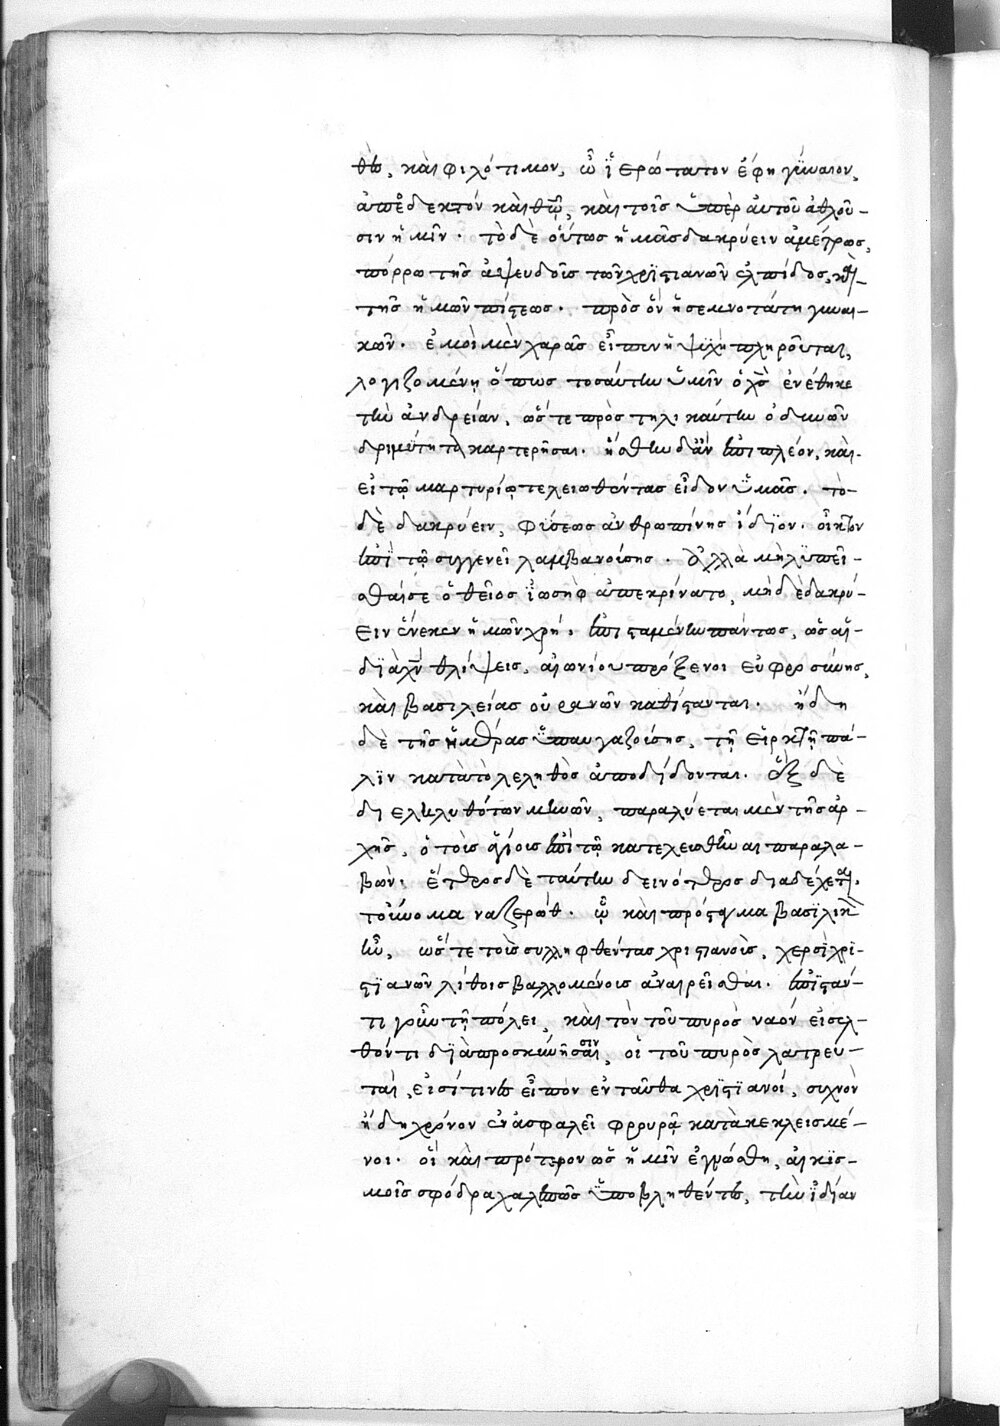 θὲς, καὶ φιλότιμον, ὦ ἱερώτατον ἔφη γύναιον,
ἀπόδεκτὸν καὶ θεῷ, καὶ τοῖς ὑπὲρ αὐτοῦ ἀθλοῦ-
σιν ἡμῖν· τὸ δὲ οὕτως ἡμᾶς δακρύειν ἀμέτρως,
πόρρω τῆς ἀψευδοῦς τῶν χριστιανῶν ἐλπίδος, καὶ
τῆς ἡμῶν πίστεως. πρὸς ὃν ἡ σεμνοτάτη γυναι-
κῶν. ἐμοὶ μὲν χαρᾶς εἶπεν ἡ ψυχὴ πληροῦται,
λογιζομένη ὅπως τοσαύτην ὑμῖν ὁ χς ἐνέθηκε
τὴν ἀνδρείαν, ὥστε πρὸς τηλικαύτην ὀδυνῶν
δριμύτητα καρτερῆσαι. ἥσθην δ' ἂν ἐπιπλέον, καὶ
εἰ τῷ μαρτυρίῳ τελειωθέντας εἶδον ὑμᾶς. τὸ
δὲ δακρύειν, φύσεως ἀνθρωπίνης ἴδιον. οἶκτον
ἐπὶ τῷ συγγενεῖ λαμβανούσης. Ἀλλὰ μὴ λυπεῖ-
σθαί σε ὁ θεῖος ἰωσὴφ ἀπεκρίνατο, μὴ δὲ δακρύ-
ειν ἕνεκεν ἡμῶν χρή. ἐπισταμένην πάντως, ὡς αἱ
διὰ χν θλίψεις, αἰωνίου πρόξενοι εὐφροσύνης,
καὶ βασιλείας οὐρανῶν καθίστανται. ἤδη
δὲ τῆς ἡμέρας ὑπαυγαζούσης, τῇ εἱρκτῇ πά-
λιν κατὰ τὸ λεληθὸς ἀποδίδονται. Ἓξ δὲ
διεληλυθότων μηνῶν, παραλύεται μὲν τῆς ἀρ-
χῆς, ὁ τοὺς ἁγίους ἐπὶ τῷ κατεχεισθῆναι παραλα-
βών· ἕτερος δὲ ταύτην δεινότερος διαδέχεται,
τοὔνομα ναζερώθ. ᾧ καὶ πρόσταγμα βασιλικὸν
ἦν, ὥστε τοὺς συλληφθέντας χριστιανοὺς, χερσὶ χρι-
στιανῶν λίθοις βαλλομένους ἀναιρεῖσθαι. ἐπιστάν-
τι γοῦν τῇ πόλει, καὶ τὸν τοῦ πυρὸς ναὸν εἰσελ-
θόντι διὰ προσκύνησιν, οἱ τοῦ πυρὸς λατρευ-
ταὶ, εἰσί τινες εἶπον ἐνταῦθα χριστιανοί, συχνὸν
ἤδη χρόνον ἐν ἀσφαλεῖ φρουρᾷ κατακεκλεισμέ-
νοι· οἳ καὶ πρότερον ὡς ἡμῖν ἐγνώσθη, αἰκισ-
μοῖς σφόδρα χαλεποῖς ὑποβληθέντες, τὴν ἰδίαν